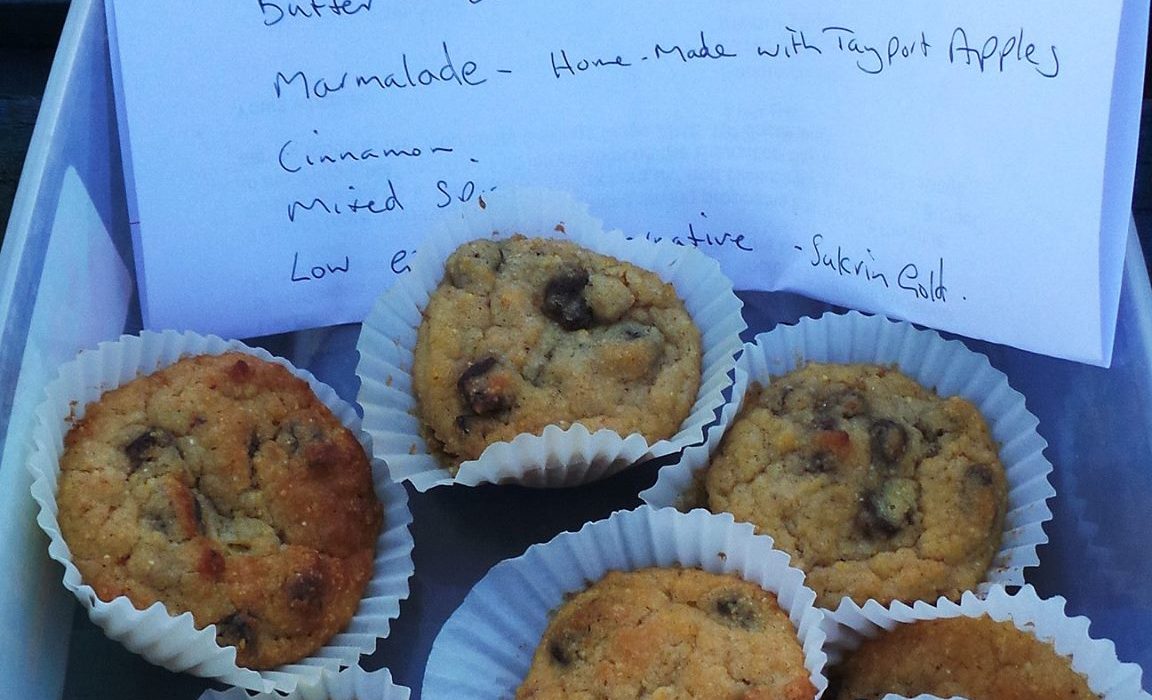 Butter
Marmalade - Home-Made with Tayport Apples
Cinnamon.
Mixed
Low - Sukrin Gold.